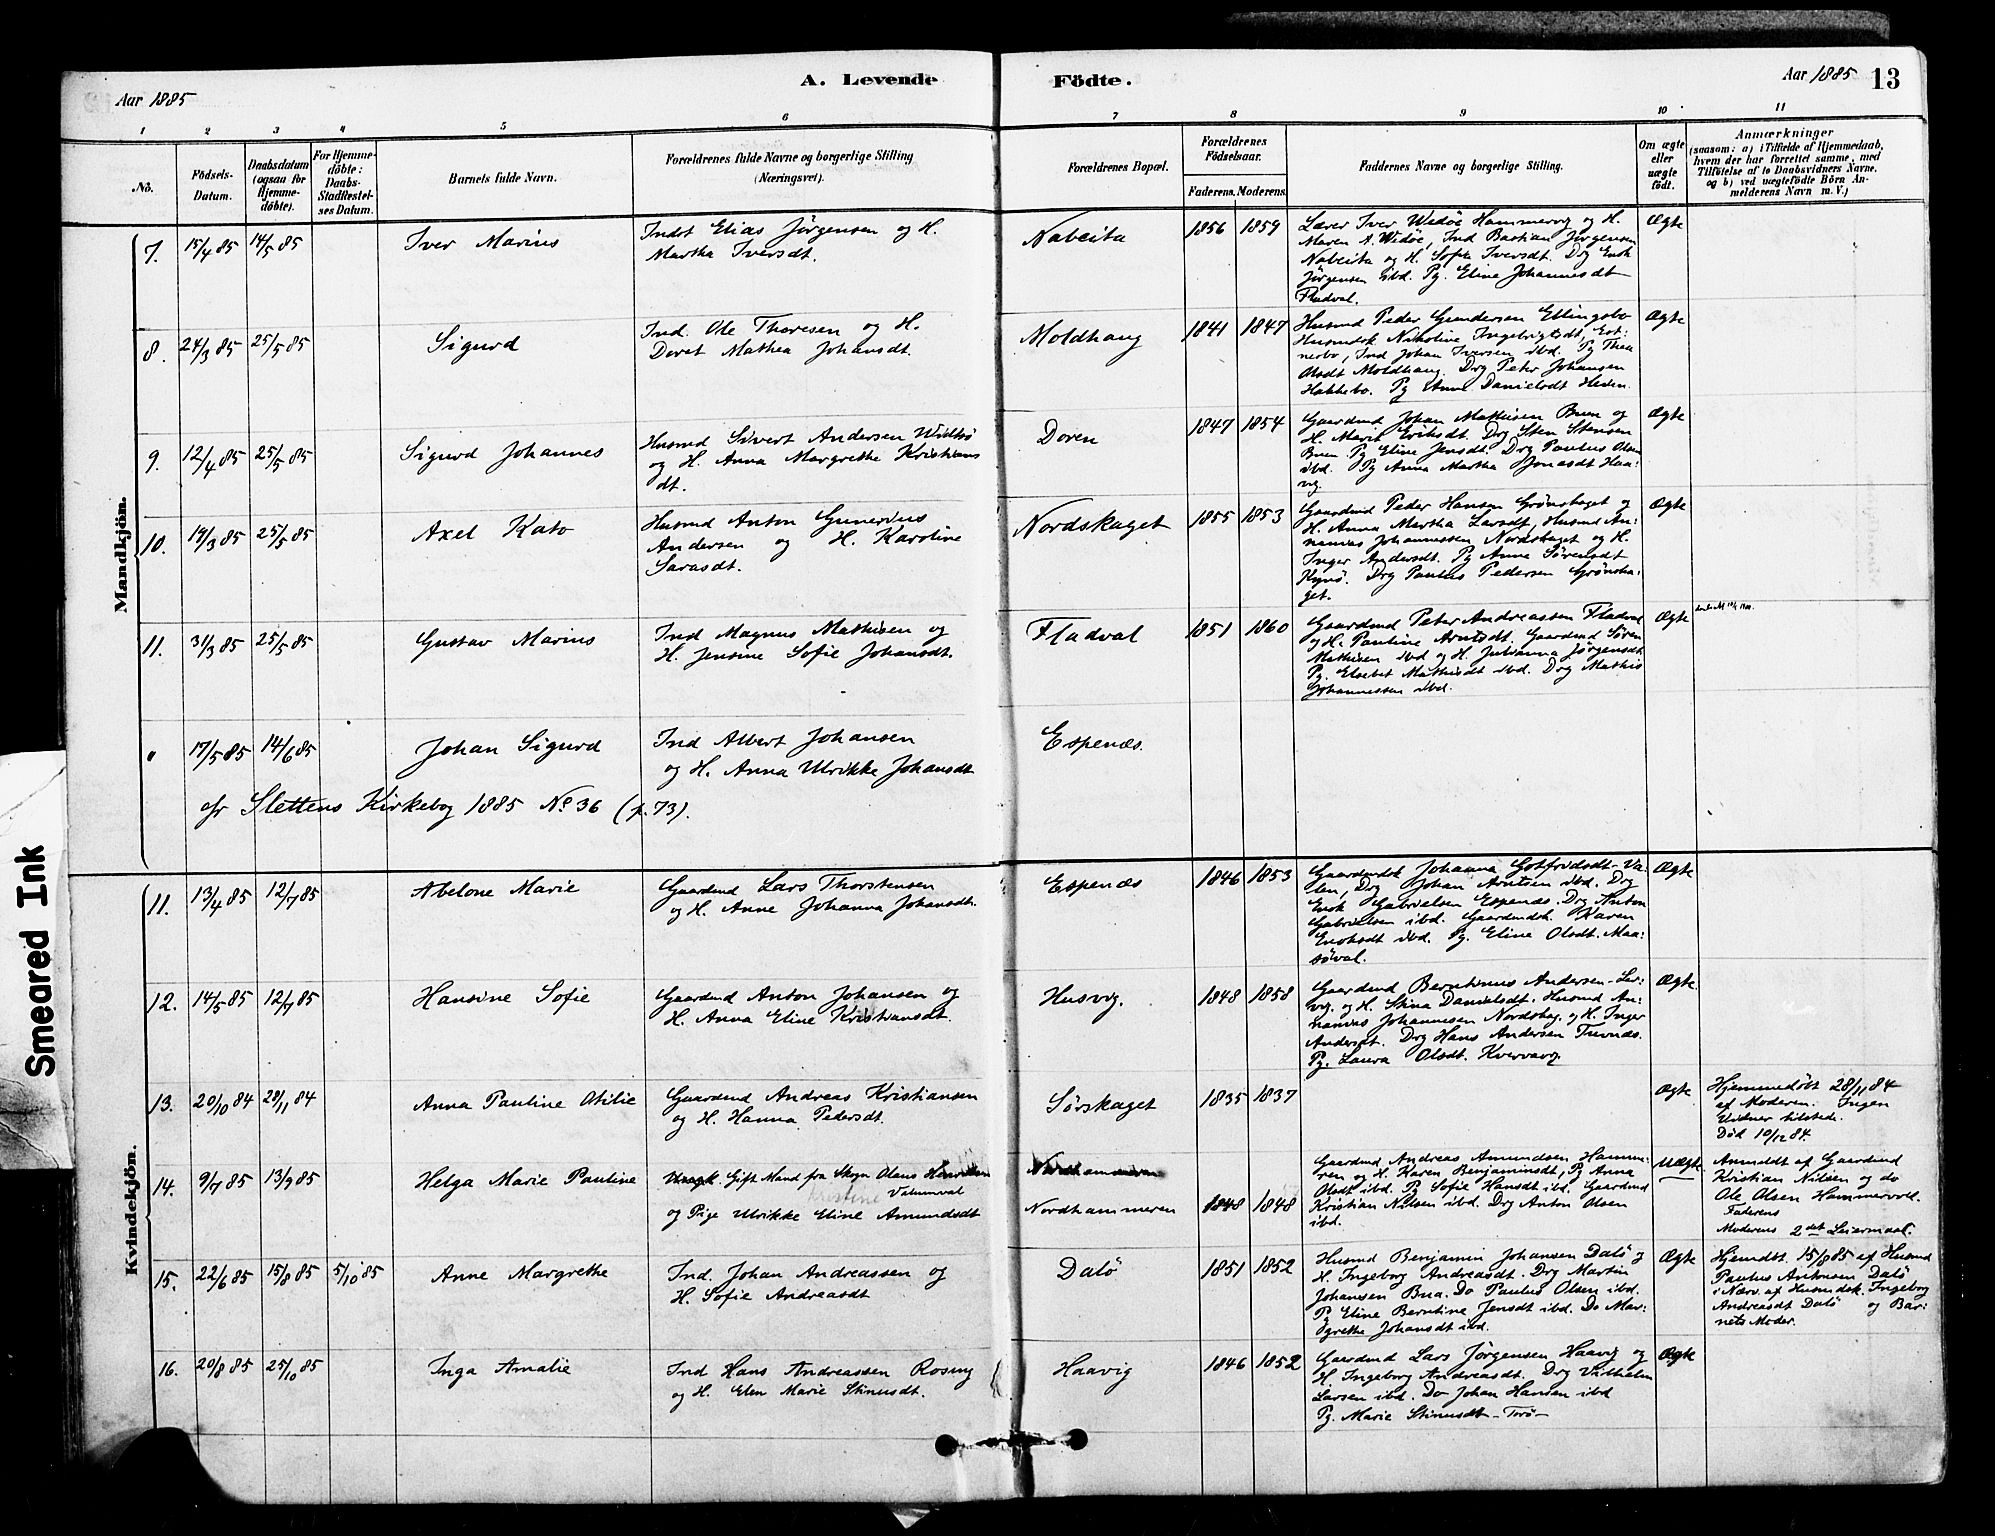 Aar 1885
A. Levende
Födte.
Aar 1885
13
1 2 3 4 5 6 7 8 9 10 11
No.
Födsels-Datum.
Daabsdatum (ogsaa for Hjemme-döbte).
For Hjemme-döbte: Daabs-Stadfæstel-ses Datum.
Barnets fulde Navn.
Forældrenes fulde Navne og borgerlige Stilling (Næringsvei).
Forældrenes Bopæl.
Forældrenes Födselsaar.
Faderens. Moderens.
Faddernes Navne og borgerlige Stilling.
Om ægte eller uægte födt.
Anmærkninger
(saasom: a) i Tilfælde af Hjemmedaab,
hvem der har forrettet samme, med
Tilföielse af to Daabsvidners Navne,
og b) ved uægtefödte Börn An-
melderens Navn m. V.)
Mandkjön.
7. 15/4 85 14/5 85 Iver Marius
Indst Elias Jørgensen og H.
Martha Iversdt.
Nabeita 1856 1859
Lærer Iver Widøe Hammervig og H.
Maren A. Widøe, Ind Bastian Jørgensen
Nabeita og H. Sofie Iversdt. Drg Enok
Jørgensen ibd. Pg. Eline Johannesdt
Fladval.
Ægte
8. 24/3 85 25/5 85 Sigurd
Ind. Ole Thoresen og H.
Doret Mathea Johansdt.
Moldhaug 1841 1847
Husmd Peder Gundersen Ellingsbo
Husmdsk Nikoline Ingebrigtsdt,
Ind Johan Iversen ibd. Pg Thea
Olsdt Moldhaug. Drg Peter Johansen
Hakkebo. Pg Anne Danielsdt Heden.
Ægte
9. 12/4 85 25/5 85 Sigurd Johannes
Husmd Sivert Andersen
og H. Anna Margrethe Kristians
dt.
Doren 1847 1854
Gaardmd Johan Mathisen Buen og
H. Marit Eriksdt. Drg Sten Stensen
Buen Pg Eline Jensdt. Drg Paulus Olsen
ibd. Pg Anna Martha Jonasdt Haa-
vig.
Ægte
10. 19/3 85 25/5 85 Axel Kato
Husmd Anton Gunerius
Andersen og H. Karoline
Sarasdt.
Nordskaget 1855 1853
Gaardmd Peder Hansen Grønskaget og
H. Anna Martha Larsdt, Husmd An:
nanias Johannessen Nordskaget og H.
Inger Andersdt. Pg Anne Sørensdt
Drg Paulus Pedersen Grønska:
get.
Ægte
11. 31/3 85 25/5 85 Gustav Marius
Ind Magnus Mathisen og
H. Jensine Sofie Johansdt.
Fladval 1851 1860
Gaardmd Peter Andreassen Fladval
og H. Pauline Arntsdt. Gaardmd Søren
Mathisen ibd og H. Julianna Jørgensdt
Pg. Elsebet Mathisdt ibd. Drg Mathis
Johannessen ibd.
Ægte
" 17/5 85 14/6 85 Johan Sigurd
Ind Albert Johansen
og H. Anna Ulrikke Johansdt
Espenæs.
cfr Slettens Kirkebog 1885 No 36 (p. 73).
Kvindekjön.
11. 13/4 85 12/7 85 Abelone Marie
Gaardmd Lars Thorstensen
og H. Anne Johanna Johansdt.
Espenæs 1846 1853
Gaardmdsk Johanna Gotfridsdt - Va-
len, Drg Johan Arntsen ibd. Drg
Enok Gabrielsen Espenæs. Drg Anton
Gabrielsen ibd. Gaardmdsk. Karen
Enoksdt ibd. Pg. Eline Olsdt. Maa:
søval.
Ægte
12. 14/5 85 12/7 85 Hansine Sofie
Gaardmd Anton Johansen og
H. Anna Eline Kristiansdt.
Husvig. 1848 1858
Gaardmd Berntinus Andersen - Ler-
vig. og H. Stina Danielsdt. Husmd An:
nanias Johannesen Nordskag. og H. Inger
Andersdt. Drg Hans Andersen
Pg. Laura Olsdt. Kvervavig
Ægte.
13. 20/10 84 28/11 84 Anna Pauline Otilie
Gaardmd Andreas Kristiansen
og H. Hanna Pedersdt.
Sørskaget 1835 1837
Ægte
Hjemmedøbt 28/11 84
af Moderen. Ingen
Vidner tilstede.
Död 10/12 84.
14. 9/7 85 13/9 85 Helga Marie Pauline
Gift Mand fra Skogn Olaus
Kristine Valumval
og Pige Ulrikke Eline Amundsdt
Nordhammeren
Nordhammeren 1848 1848
Gaardmd Andreas Amundsen Hamme-
ren og H. Karen Benjaminsdt, Pg Anna
Olsdt ibd. Pg Sofie Hansdt ibd. Gaardmd
Kristian Nilsen ibd. Drg Anton Olsen
ibd.
Uægte
Anmeldt af Gaardmd
Kristian Nilsen og do
Ole Olsen Hammervold.
Faderens
Moderens 2det Leiermaal.
15. 22/6 85 15/8 85 5/10 85 Anne Margrethe
Ind. Johan Andreassen og
H. Sofie Andreasdt
Dalø 1851 1852
Husmd Benjamin Johansen Dalø og
H. Ingeborg Andreasdt. Drg Martin
Johansen Bua. Do Paulus Olsen ibd.
Pg Eline Berntine Jensdt ibd. Do Mar-
grethe Johansdt ibd.
Ægte
Hjemdbt. 15/8 85 af Husmd
Paulus Antonsen Dalø
i Nærv. af Husmdsk. Ingeborg
Andreasdt Dalø og Bar:
nets Moder.
16. 20/8 85 25/10 85 Inga Amalie
Ind Hans Andreassen Rosvig
og H. Elen Marie Stinusdt.
Haavig 1846 1852
Gaardmd Lars Jørgensen Haavig og
H. Ingeborg Andreasdt. Drg Vilhelm
Larsen ibd. Do Johan Hansen ibd
Pg. Marie Stinusdt - Torø -
Ægte
Smeared Ink